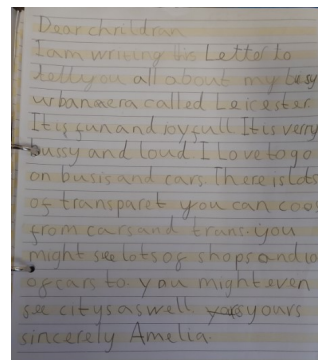 Dear chrildran
I am writing this Letter to
telly you all about my busy
urban aera called Leicester
It is fun and joyfull It is verry
bussy and loud I Love to go
on busis and cars. There is lots
of transparet you can coos
from cars and trans. you
might see lots of shops and lo
of cars to you might even
see citys as well. yours
sincerely Amelia.